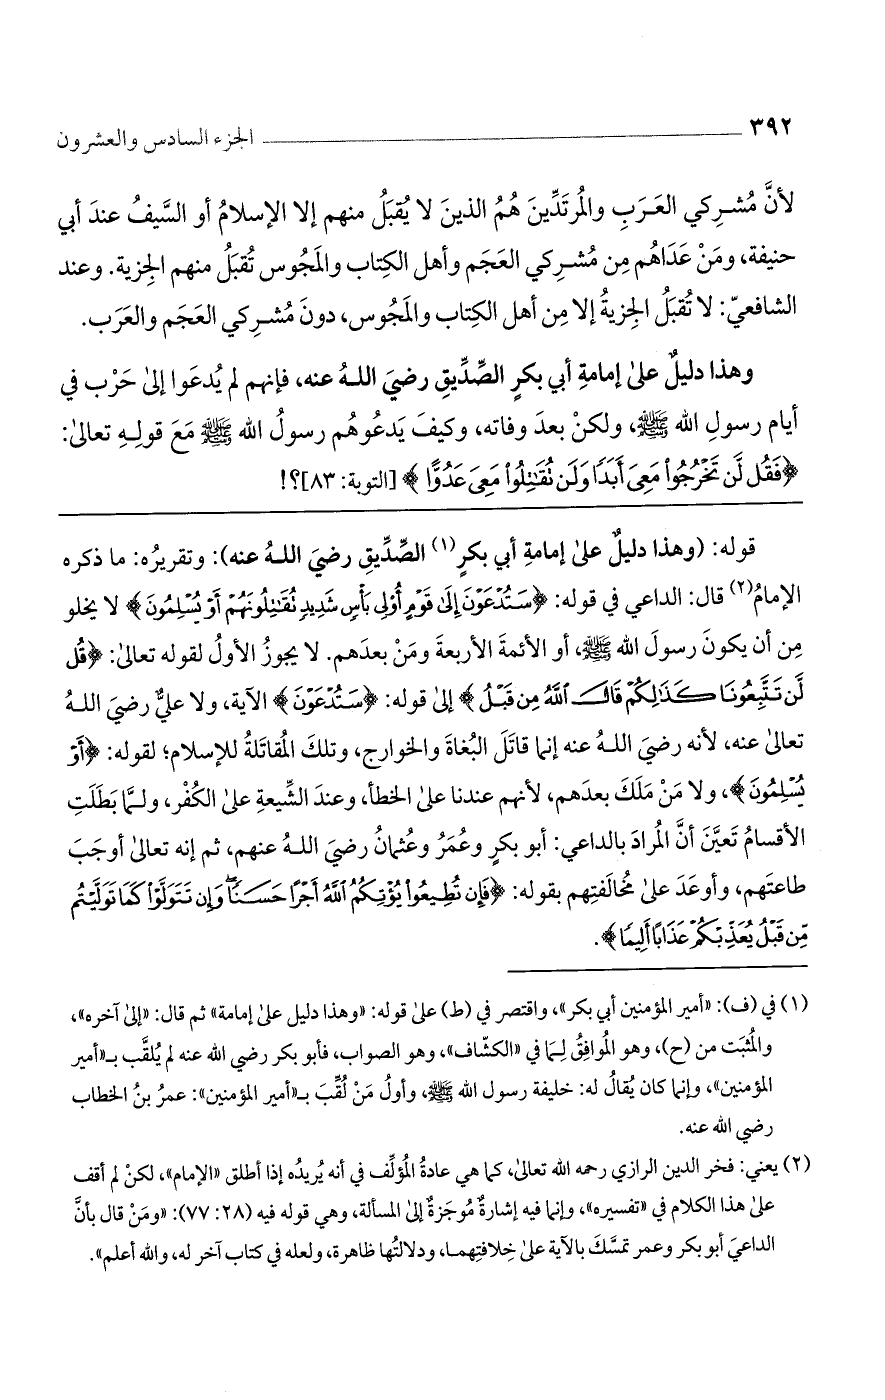 ٣٩٢ الجزء السادس والعشرون
لأنَّ مُشـرِكي العَـرَبِ والمُرتَدِّينَ هُمُ الذينَ لا يُقبَلُ منهم إلا الإسلامُ أو السَّيفُ عندَ أبي
حنيفة، ومَنْ عَدَاهُم مِن مُشـركي العَجَم وأهل الكِتاب والمَجُوس تُقبَلُ منهم الجِزية. وعند
الشافعيّ: لا تُقبَلُ الجِزيةُ إلا مِن أهل الكتاب والمَجُوس، دونَ مُشـركي العَجَم والعَرَب.
وهذا دليلٌ علىٰ إمامةِ أبي بكرٍ الصِّدِّيقِ رضيَ اللـهُ عنه، فإنهم لم يُدعَوا إلىٰ حَرْب في
أيام رسولِ الله ﷺ، ولكنْ بعدَ وفاته، وكيفَ يَدعُوهُم رسولُ الله ﷺ مَعَ قولِـهِ تعالىٰ:
﴿فَقُل لَّن تَخۡرُجُواْ مَعِىَ أَبَدٗا وَلَن تُقَٰتِلُواْ مَعِىَ عَدُوًّا﴾ [التوبة: ٨٣]؟!
قوله: (وهذا دليلٌ علىٰ إمامةِ أبي بكرٍ(١) الصِّدِّيقِ رضيَ اللـهُ عنه): وتقريرُه: ما ذكره
الإمامُ(٢) قال: الداعي في قوله: ﴿سَتُدۡعَوۡنَ إِلَىٰ قَوۡمٍ أُوْلِى بَأۡسٖ شَدِيدٖ تُقَٰتِلُونَهُمۡ أَوۡ يُسۡلِمُونَ﴾ لا يخلو
مِن أن يكونَ رسولَ الله ﷺ، أو الأئمةَ الأربعةَ ومَنْ بعدَهم. لا يجوزُ الأولُ لقوله تعالىٰ: ﴿قُل
لَّن تَتَّبِعُونَا كَذَٰلِكُمۡ قَالَ ٱللَّهُ مِن قَبۡلُ﴾ إلىٰ قوله: ﴿سَتُدۡعَوۡنَ﴾ الآية، ولا عليٌّ رضيَ اللـهُ
تعالىٰ عنه، لأنه رضيَ اللـهُ عنه إنما قاتَلَ البُغاةَ والخوارج، وتلكَ المُقاتَلةُ للإسلام؛ لقوله: ﴿أَوۡ
يُسۡلِمُونَ﴾، ولا مَنْ مَلَكَ بعدَهم، لأنهم عندنا علىٰ الخطأ، وعندَ الشِّيعةِ علىٰ الكُفْر، ولـمَّا بَطَلَتِ
الأقسامُ تَعيَّنَ أنَّ المُرادَ بالداعي: أبو بكرٍ وعُمَرُ وعُثمانُ رضيَ اللـهُ عنهم، ثم إنه تعالىٰ أوجَبَ
طاعتَهم، وأوعَدَ علىٰ مُخالَفتِهم بقوله: ﴿فَإِن تُطِيعُواْ يُؤۡتِكُمُ ٱللَّهُ أَجۡرًا حَسَنٗاۖ وَإِن تَتَوَلَّوۡاْ كَمَا تَوَلَّيۡتُم
مِّن قَبۡلُ يُعَذِّبۡكُمۡ عَذَابًا أَلِيمٗا﴾.
(١) في (ف): «أمير المؤمنين أبي بكر»، واقتصر في (ط) علىٰ قوله: «وهذا دليل علىٰ إمامة» ثم قال: «إلىٰ آخره»،
والمُثبَت من (ح)، وهو المُوافِقُ لِـمَا في «الكشّاف»، وهو الصواب، فأبو بكر رضي الله عنه لم يُلقَّب بـ«أمير
المؤمنين»، وإنما كان يُقالُ له: خليفة رسول الله ﷺ، وأولُ مَنْ لُقِّبَ بـ«أمير المؤمنين»: عمرُ بنُ الخطاب
رضي الله عنه.
(٢) يعني: فخر الدين الرازي رحمه الله تعالىٰ، كما هي عادةُ المُؤلِّف في أنه يُريدُه إذا أطلق «الإمام»، لكنْ لم أقف
علىٰ هذا الكلام في «تفسيره»، وإنما فيه إشارةٌ مُوجَزةٌ إلىٰ المسألة، وهي قوله فيه (٢٨: ٧٧): «ومَنْ قال بأنَّ
الداعيَ أبو بكر وعمر تمسَّكَ بالآية علىٰ خِلافتِهمـا، ودلالتُها ظاهرة، ولعله في كتاب آخر له، والله أعلم».